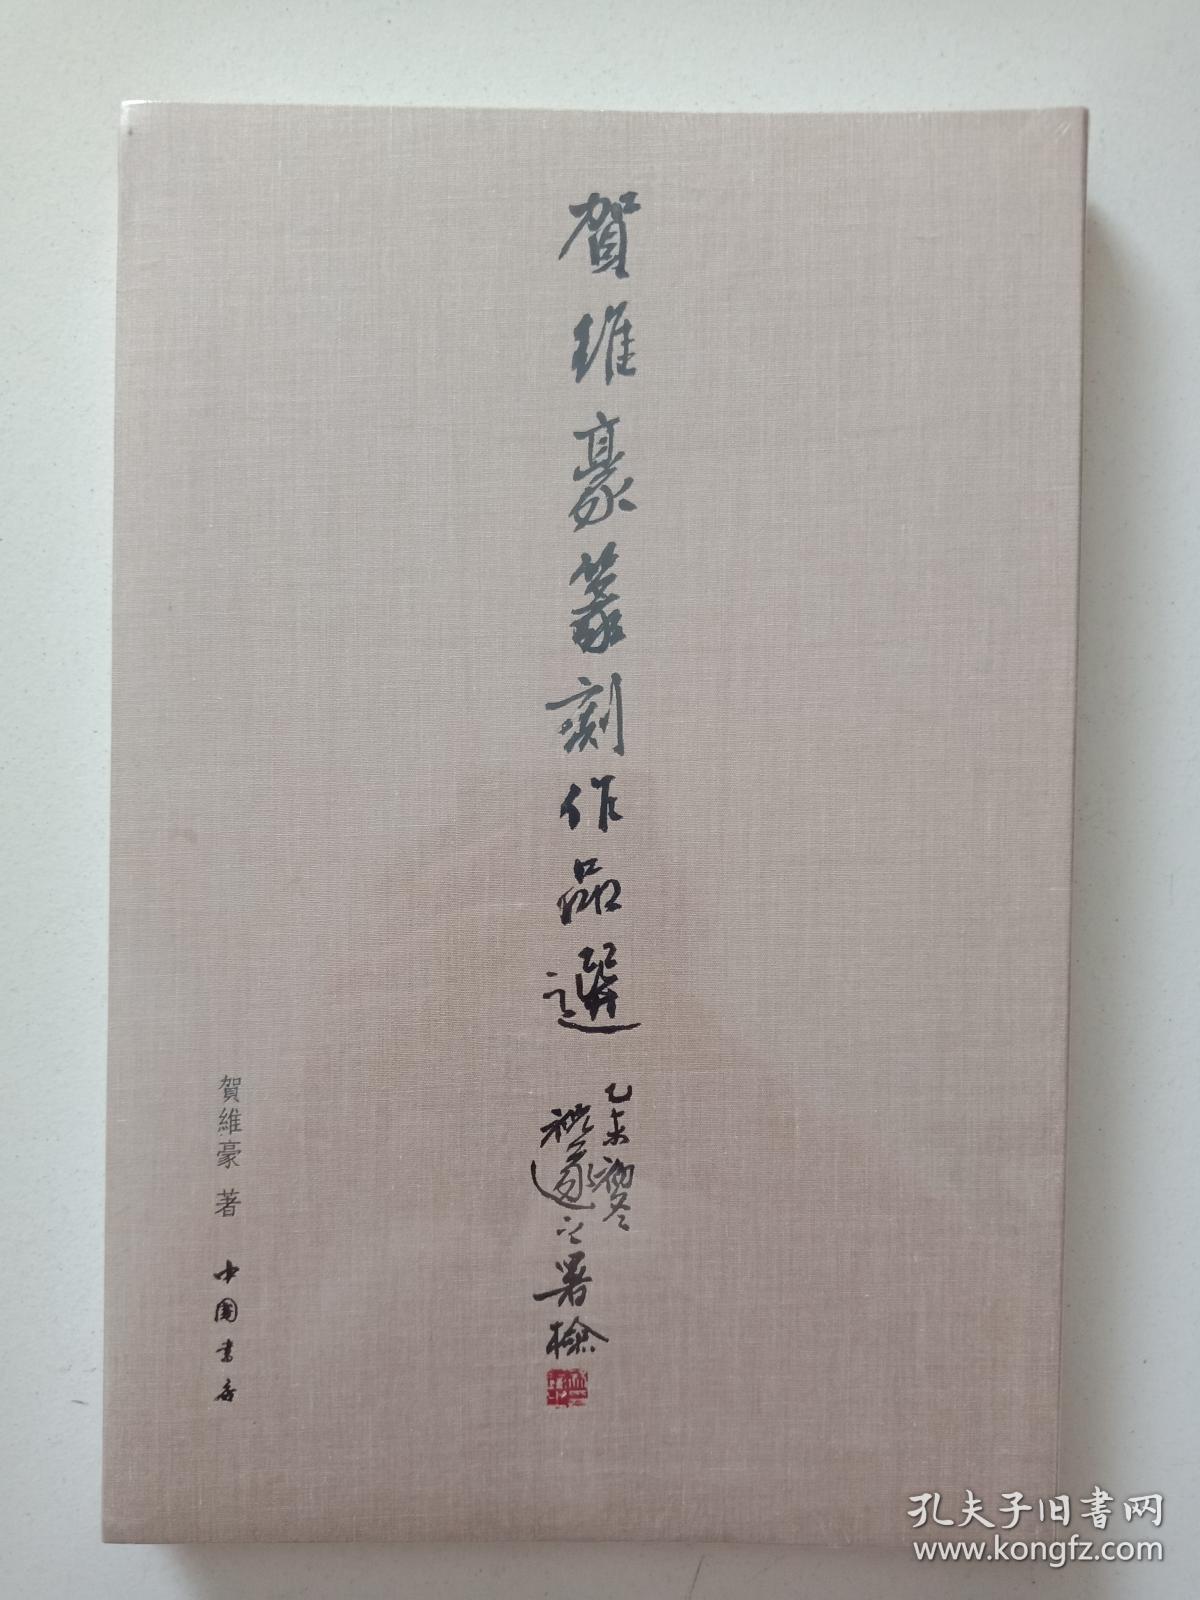 賀維豪篆刻作品選
乙未初冬
之署檢
賀維豪 著
中國書店
孔夫子旧书网
www.kongfz.com